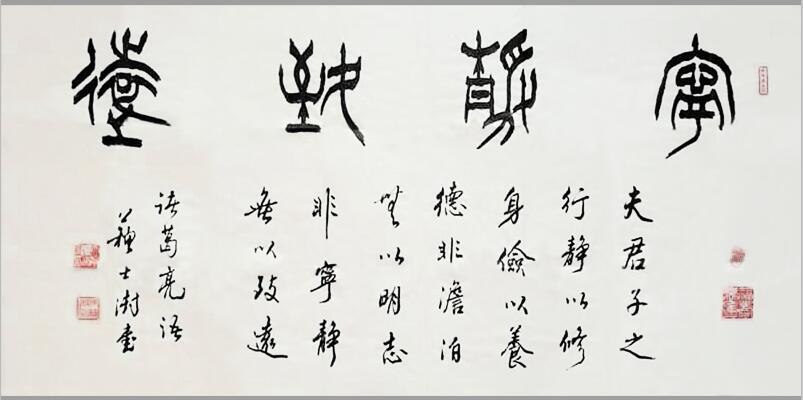 寧靜致遠
夫君子之
行静以修
身儉以養
德非澹泊
無以明志
非寧静
無以致遠
諸葛亮语
蘇士澍書